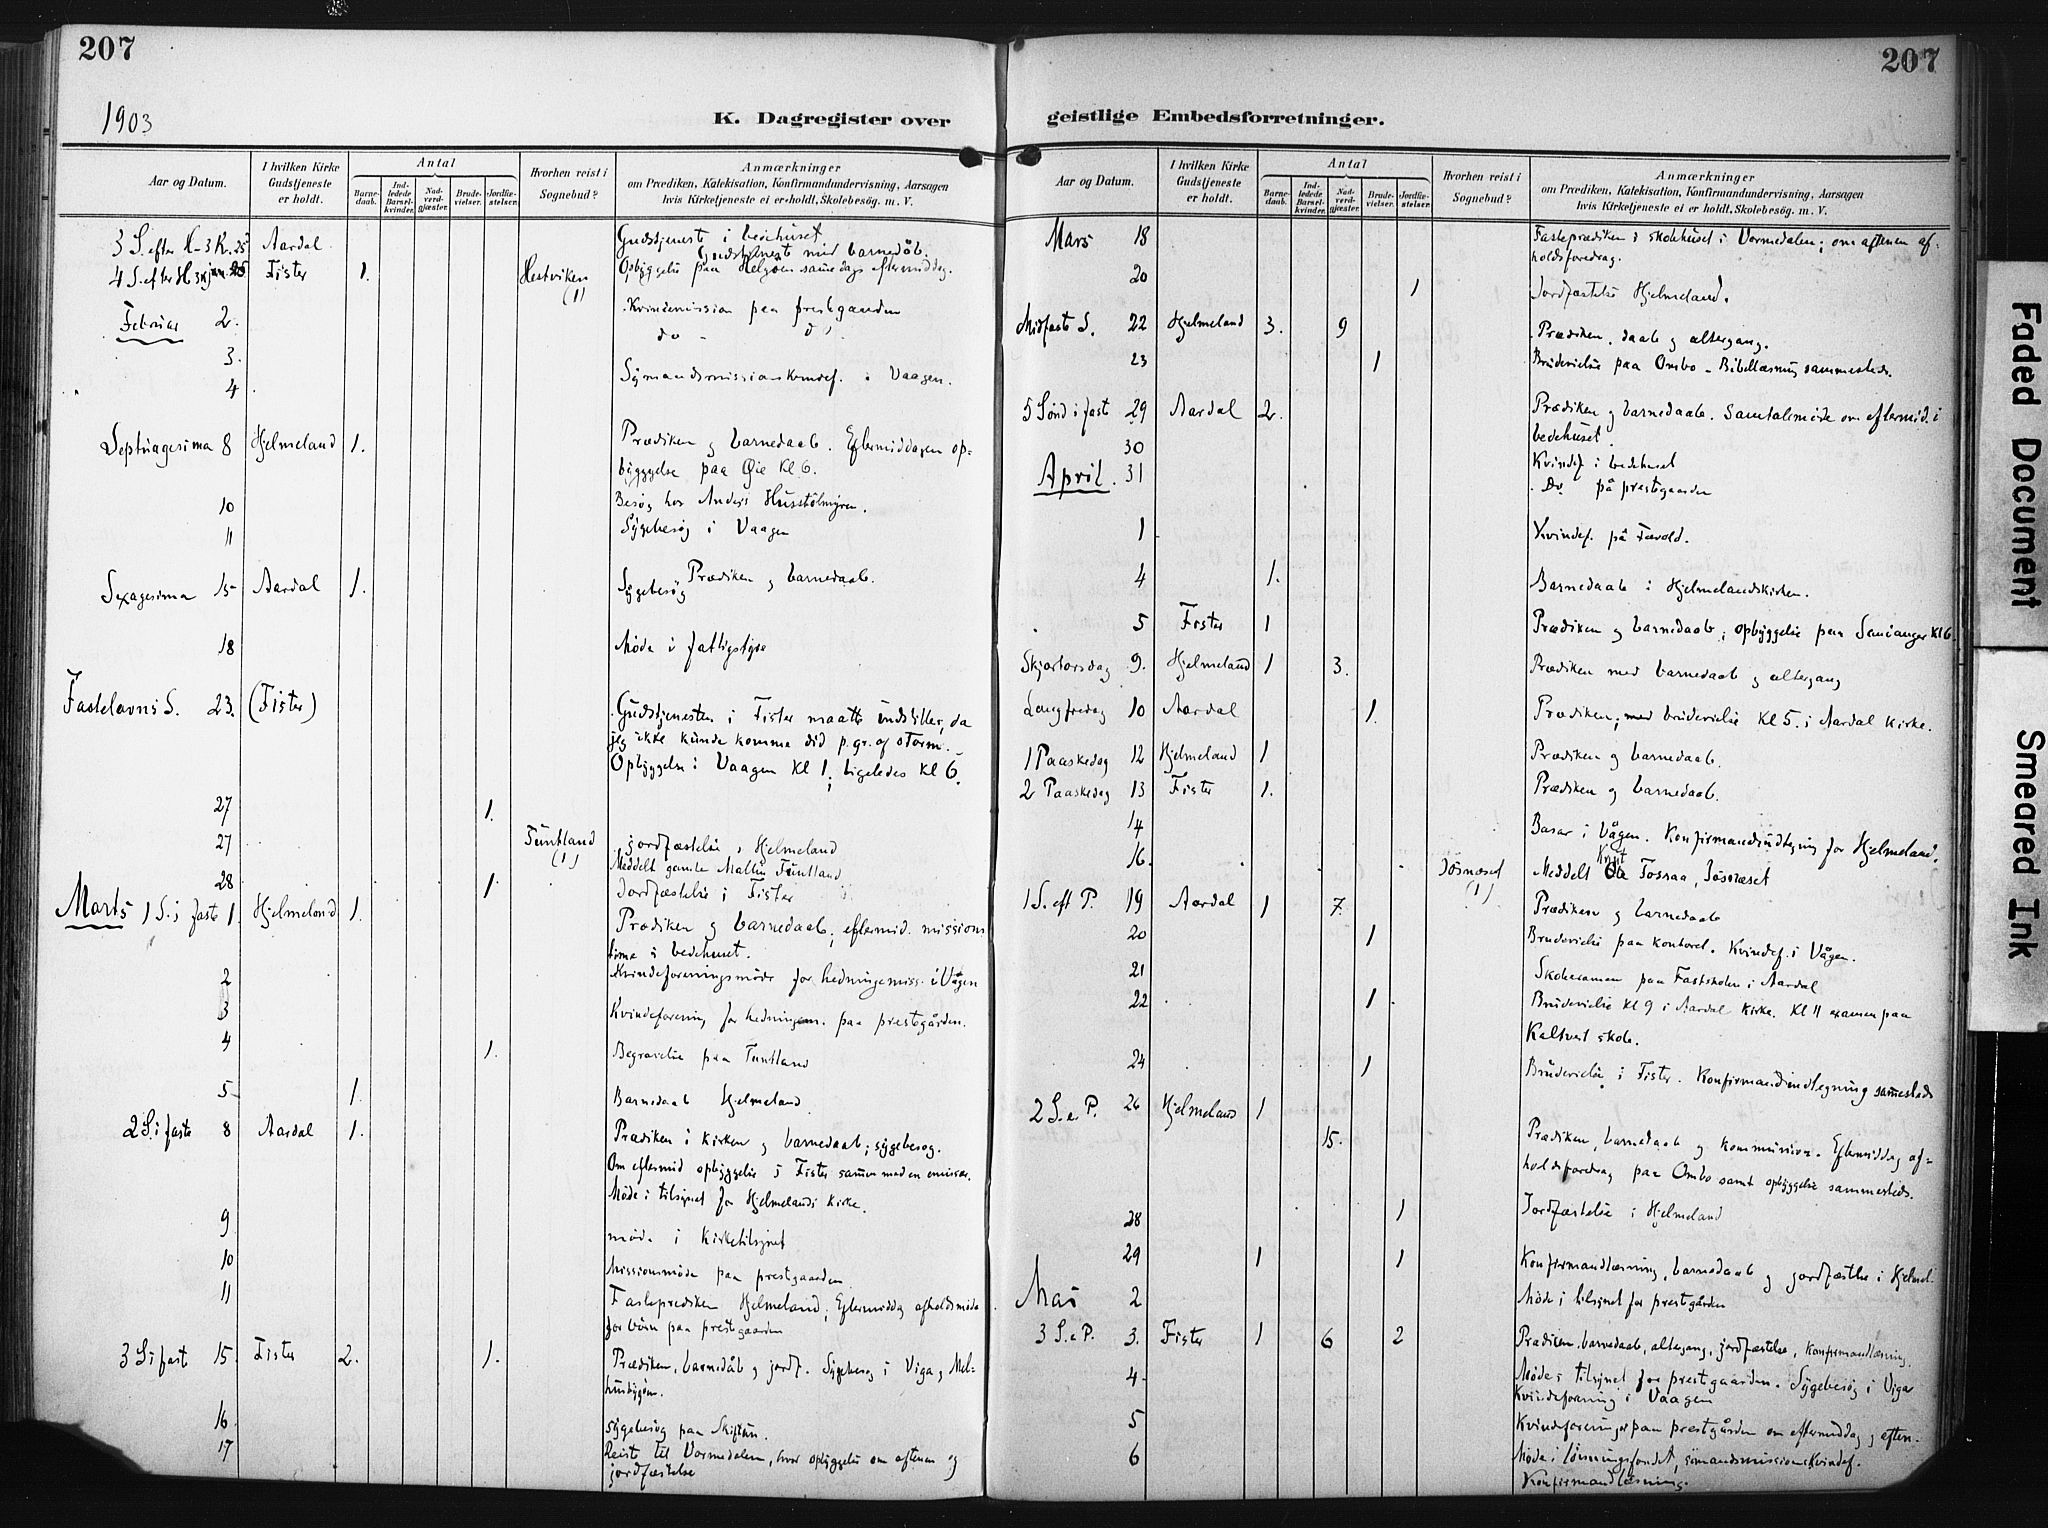 207
1903
K. Dagregister over
Aar og Datum.
I hvilken Kirke Gudstjeneste er holdt.
Antal
Barne-daab.
Ind-ledede Barsel-kvinder.
Nad-verd-gjæster.
Brude-vielser.
Jordfæ-stelser.
Hvorhen reist i Sognebud?
Anmærkninger
om Prædiken, Katekisation, Konfirmandundervisning, Aarsagen
hvis Kirketjeneste ei er holdt, Skolebesøg. m. V.
3 S. efter H-3 K. 25 Aardal Gudstjenest i bedehuset
Gudstjenest med barnedåb.
4 S. efter H 3 K jan. 25 Fister 1. Hestviken (1) Opbyggelse paa Helgøen samme dags eftermiddag.
Februar 2. Kvindemission paa prestegaarden
3. do - do
4 Sømandsmissionskvindef. i Vaagen.
Septuagesima 8 Hjelmeland 1. Prædiken og barnedaab. Eftermiddagen op-
byggelse paa Øie Kl 6.
10 Besøg hos Anders
11 Sygebesøg i Vaagen
Sexagesima 15 Aardal 1. Prædiken og barnedaab.
Sygebesøg
18 Møde i fattigstyre
Fastelavns S. 23. (Fister) Gudstjenesten i Fister maatte indstilles, da
jeg ikke kunde komme did p. gr. af storm.
Opbyggelse i Vaagen Kl 1; ligeledes Kl 6.
27 1.
27 Tuntland (1) jordfæstelse i Hjelmeland
Meddelt gamle Tuntland
28 1. Jordfæstelse i Fister
Marts 1 S. i faste 1 Hjelmeland 1. Prædiken og barnedaab, eftermid. missions
time i bedehuset.
2 Kvindeforeningsmøde for hedningemiss. i Vågen
3 Kvindeforening for hedningem. paa prestegården.
4 1. Begravelse paa Tuntland
5 1. Barnedaab Hjelmeland
2 S i faste 8 Aardal 1. Prædiken i kirken og barnedaab; sygebesøg.
Om eftermid opbyggelse i Fister sammen med en emissær.
Møde i tilsynet for Hjelmelands kirke.
9 møde i kirketilsynet
10 Missionsmøde paa prestgaarden
11 Fasteprediken Hjelmeland; Eftermiddag afholdsmøde
for børn paa prestgaarden
3 S i fast 15. Fister 2. 1. Prædiken, barnedåb og jordf. Sygebesøg i Viga, Mel-
husbygden.
16 Sygebesøg paa Skiftun.
17 Reist til Vormedalen, hvor opbyggelse om aftenen og
jordfæstelse
207
geistlige Embedsforretninger.
Aar og Datum.
I hvilken Kirke Gudstjeneste er holdt.
Antal
Barne-daab.
Ind-ledede Barsel-kvinder.
Nad-verd-gjæster.
Brude-vielser.
Jordfæ-stelser.
Hvorhen reist i Sognebud?
Anmærkninger
om Prædiken, Katekisation, Konfirmandundervisning, Aarsagen
hvis Kirketjeneste ei er holdt, Skolebesøg. m. V.
Mars 18 Fasteprædiken i skolehuset i Vormedalen; om aftenen af-
holdsforedrag.
20 1 Jordfæstelse Hjelmeland.
Midfaste S. 22 Hjelmeland 3. 9 Prædiken, daab og altergang.
23 1 Brudevielse paa Ombo - Bibellæsning sammesteds.
5 Sønd i fast 29 Aardal 2. Prædiken og barnedaab. Samtalemøde om eftermid. i
bedehuset.
30 Kvindef i bedehuset
April. 31 Do på prestegaarden
1 Kvindef. på Fævold.
4 1. Barnedaab i Hjelmelandskirken.
5 Fister 1 Prædiken og barnedaab; opbyggelse paa Kl 6
Skjærtorsdag 9. Hjelmeland 1 3. Prædiken med barnedaab og altergang
Langfredag 10 Aardal 1. Prædiken, med brudevielse Kl 5. i Aardal kirke.
1 Paaskedag 12 Hjelmeland 1 Prædiken og barnedaab.
2 Paaskedag 13 Fister 1. Prædiken og barnedaab.
14 Basar i Vågen. Konfirmandindtegning for Hjelmeland.
16. Jøsnæset (1) Meddelt Knut Fossaa, Jøsnæset
1 S. eft P. 19 Aardal 1 7. Prædiken og barnedaab
20 1 Brudevielse paa kontoret. Kvindef. i Vågen.
21 Skoleexamen paa Fastskolen i Aardal
22 1 Brudevielse Kl 9 i Aardal kirke. Kl 11 examen paa
Kaltvet skole.
24 1 Brudevielse i Fister. Konfirmandindtegning sammesteds
2 S. e. P. 26 Hjelmeland 1
15. Prædiken, barnedaab og kommunion. Eftermiddag af-
holdsforedrag paa Ombo samt opbyggelse sammesteds.
28 1 Jordfæstelse i Hjelmeland
29 1 1 Konfirmandlæsning, barnedaab og jordfæstelse i Hjelmel.
Mai 2 Møde i tilsynet for prestgården
3 S. e P. 3. Fister 1 6 2 Prædiken, barnedaab, altergang, jordfæstelse, konfirmandlæsning.
4 Møde i tilsynet for prestgaarden. Sygebesøg i Viga
Kvindeforening i Vaagen
5 Kvindeforeninger paa prestgården om eftermiddag og aften.
6 Møde i lønningsfondet, sømandsmissionskvindef.
Konfirmandlæsning.
Faded Document
Smeared Ink